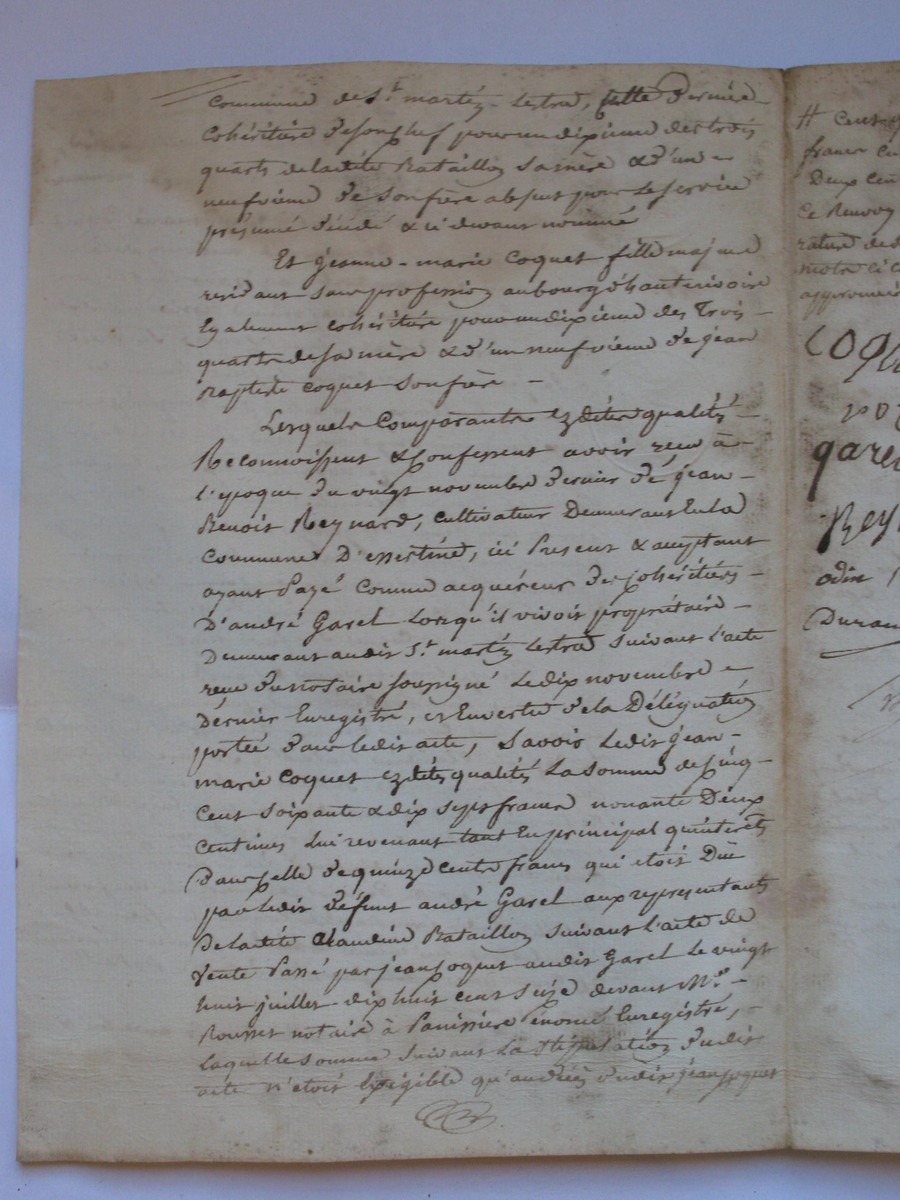 commune de St martin Lestra, cette Dernière
cohéritière de son chef pour un dixieme des trois
quarts de ladite Bataillon sa mère & d'un
neufvieme de son frère absent pour le service
présumé décédé & ci devant nommé
Et jeanne-marie Coquet fille majeure
residant sans profession au bourg d'hauterivoire
Egalement cohéritière pour un dixieme des Trois
quarts de sa mère & d'un neufvieme de jean
Baptiste Coquet son frère
Lesquels Comparants ezdites qualités
Reconnoissent & Confessent avoir reçu à
l'epoque du vingt novembre dernier de jean
Benoit Reynard, cultivateur Demeurant En la
Commune D'essertine, ici Present & acceptant
ayant Payé comme acquéreur des cohéritiers
D'andré Garel Lorsqu'il vivoit propriétaire
Demeurant audit St martin Lestra suivant l'acte
reçu du notaire soussigné Le dix novembre
Dernier Enregistré, et En vertu de la Délégation
portée dans ledit acte, Savoir Ledit jean
marie Coquet ezdites qualités La somme de Cinq
Cent soixante & dix sept francs nonante Deux
centimes Lui revenant tant En principal qu'interets
dans Celle de quinze cents francs qui etoit Düe
par ledit défunt andré Garel aux representants
De ladite Claudine Bataillon suivant l'acte de
Vente Passé par jean Coquet audit Garel Le vingt
huit juillet dix huit cent seize devant Me
Rousset notaire à Panissiere Enregistré,
laquelle somme suivant La stipulation dudit
acte n'etoit Exigible qu'au décès dudit jean Coquet
# cent
francs
Deux cen
Ce Renvoy
rature de
mots ci
approuvé
COQU
gare
Rey
odin
Duran